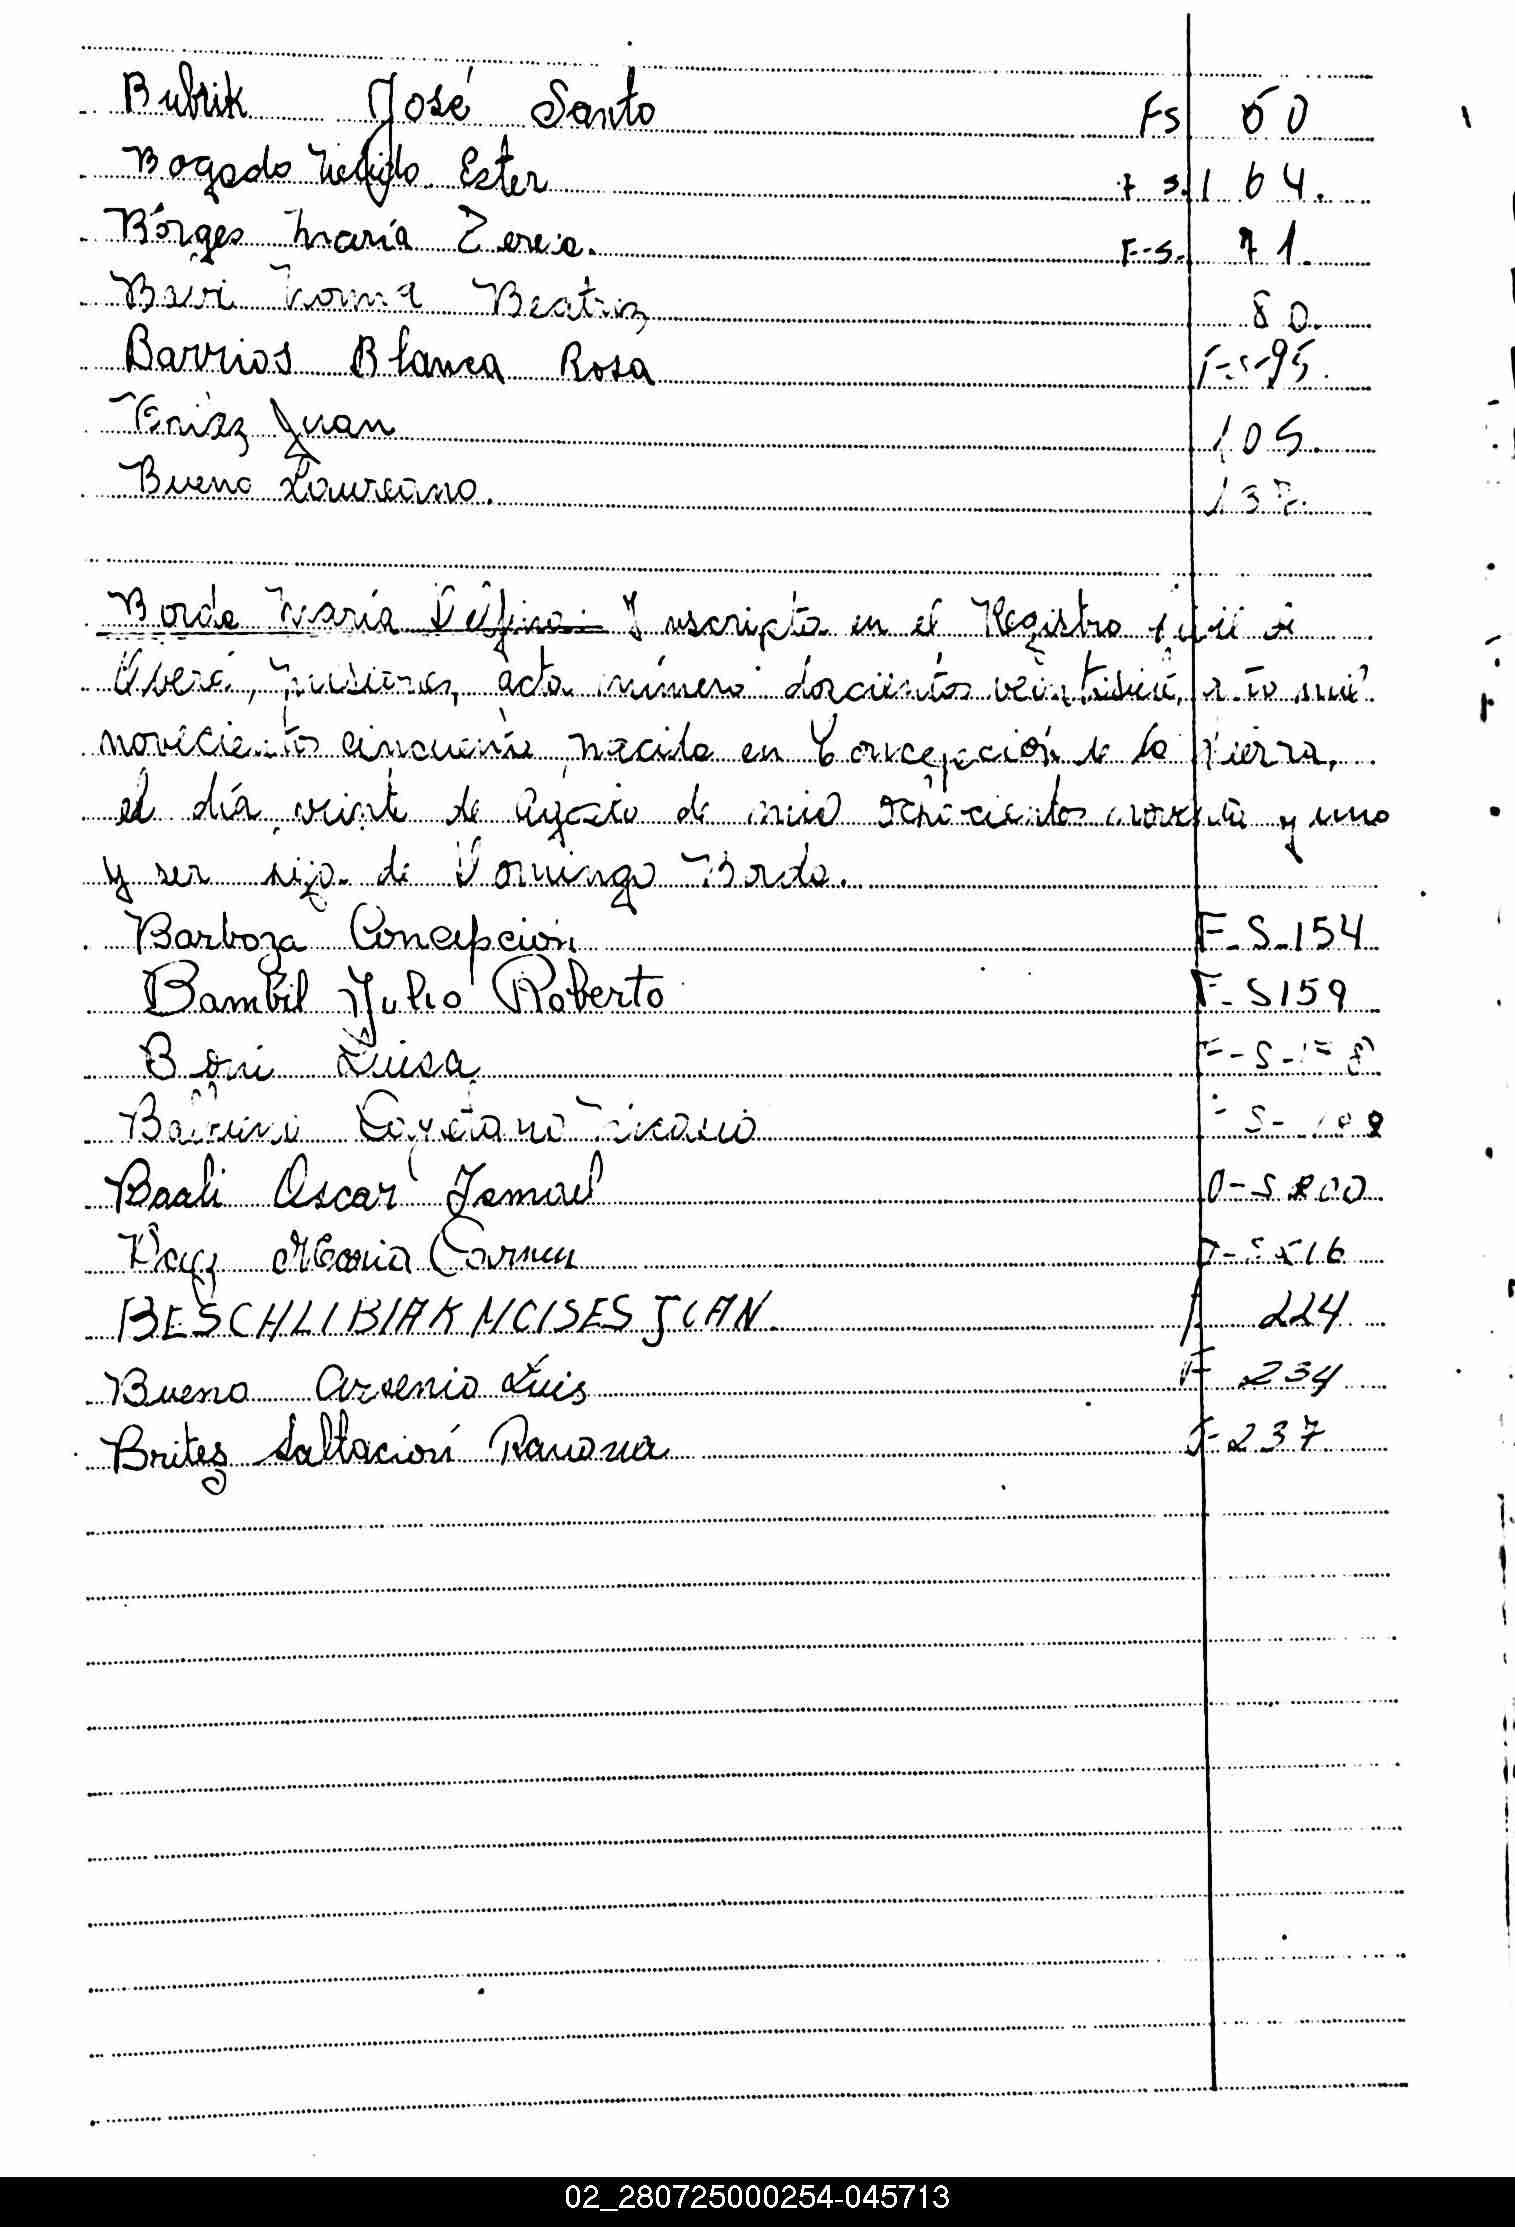 Bubrik José Santo Fs 60
Bogado Ester F S. 64.
Borges María F-S. 71.
Norma Beatriz 80.
Barrios Blanca Rosa F-S-95.
Juan 105.
Bueno Laureano. 137.
Borda María Delfina Inscripta en el Registro Civil de
Oberá, Misiones, acta número doscientos año mil
novecientos cincuenta, nacida en Concepción de la Sierra,
el día veinte de Agosto de mil ochocientos noventa y uno
y ser hija de Domingo Borda.
Barboza Concepción F-S-154
Bambil Julio Roberto F-S 159
Boni Luisa F-S-
Cayetano Nicasio S-
Baali Oscar Ismael -S 200
María Carmen 216
BESCHLIBIAK MOISES JUAN. f 224
Bueno Arsenio Luis F 234
Britez Saltación Ramona F-237
02_280725000254-045713